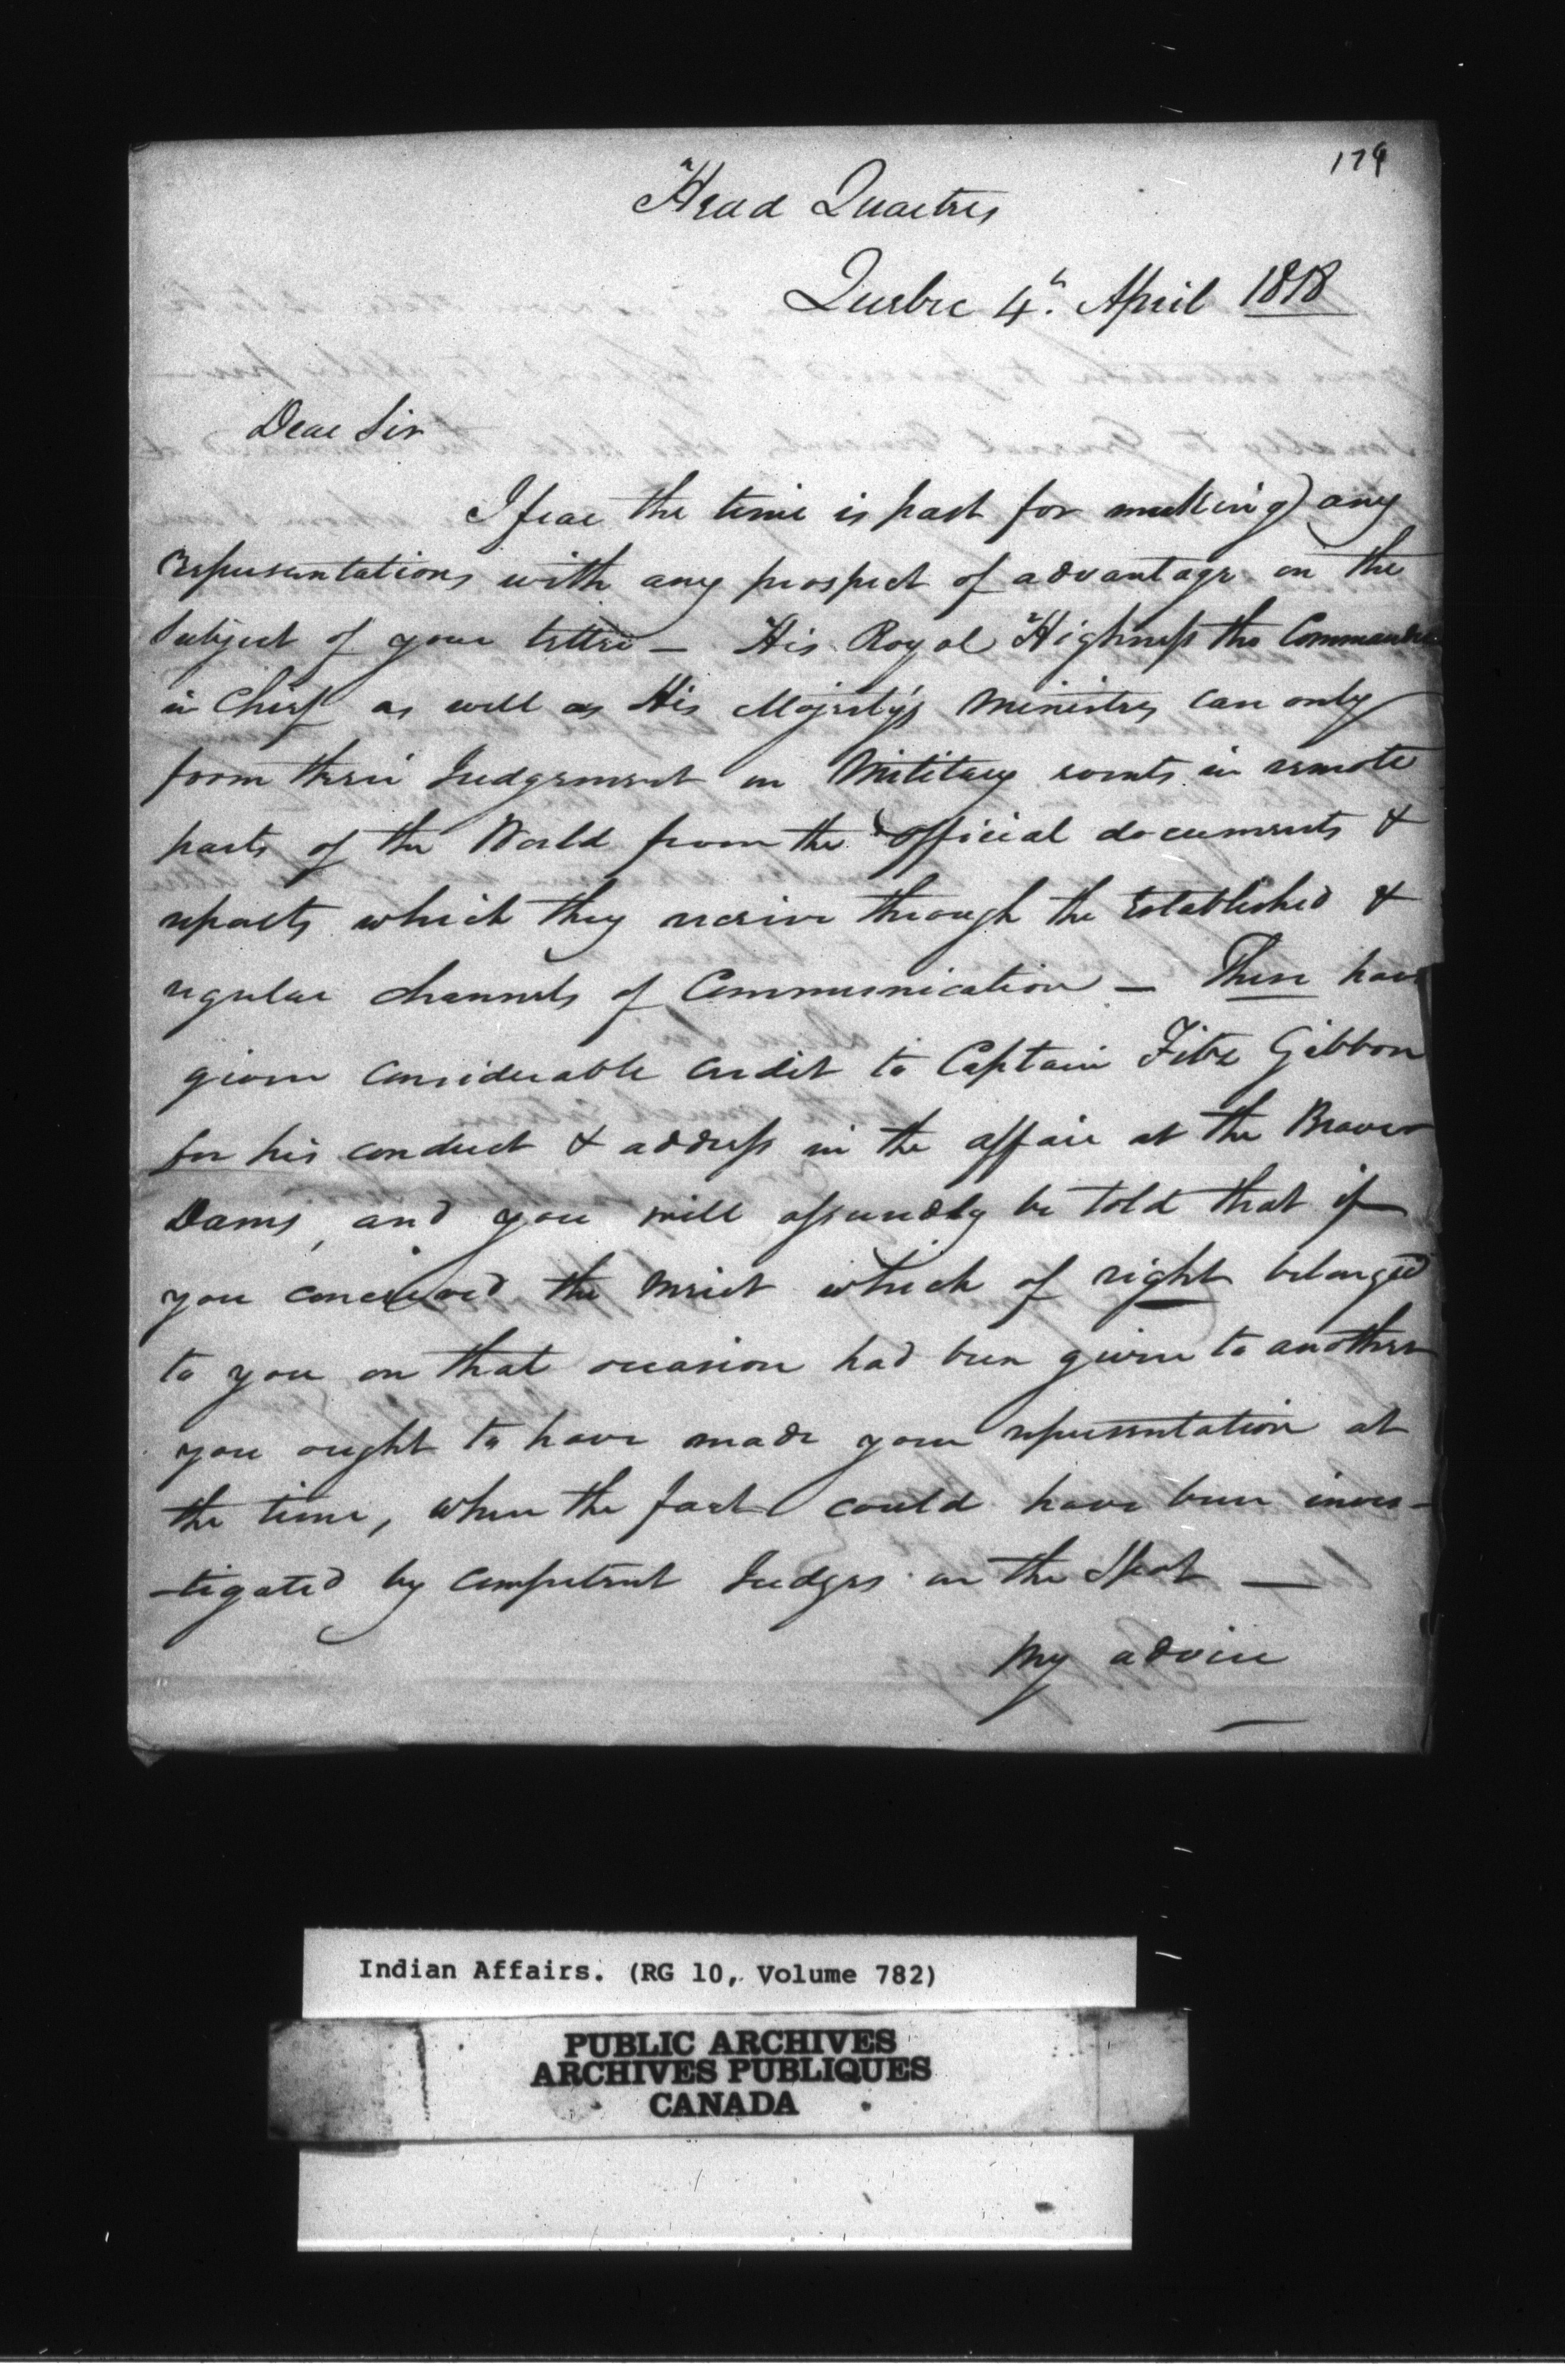 179
Head Quarters
Quebec 4th. April 1818
Dear Sir
I fear the time is past for making any
representations with any prospect of advantage on the
subject of your letter — His Royal Highness the Commander
in Chief as well as His Majesty's Ministers can only
form their Judgement on Military events in remote
parts of the World from the official documents &
reports which they receive through the established &
regular channels of Communication — These have
given considerable credit to Captain Fitz Gibbon
for his conduct & address in the affair at the Beaver
Dams, and you will assuredly be told that if
you conceived the merit which of right belonged
to you on that occasion had been given to another
you ought to have made your representation at
the time, when the fact could have been inves-
-tigated by competent Judges on the Spot —
My advice
Indian Affairs. (RG 10, Volume 782)
PUBLIC ARCHIVES
ARCHIVES PUBLIQUES
CANADA